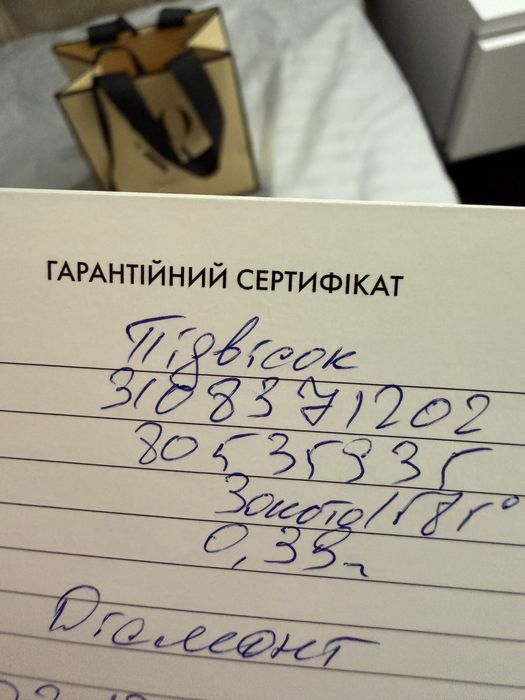 ГАРАНТІЙНИЙ СЕРТИФІКАТ
Підвісок
3108371202
80535935
Золото
0,39г
Діамонт